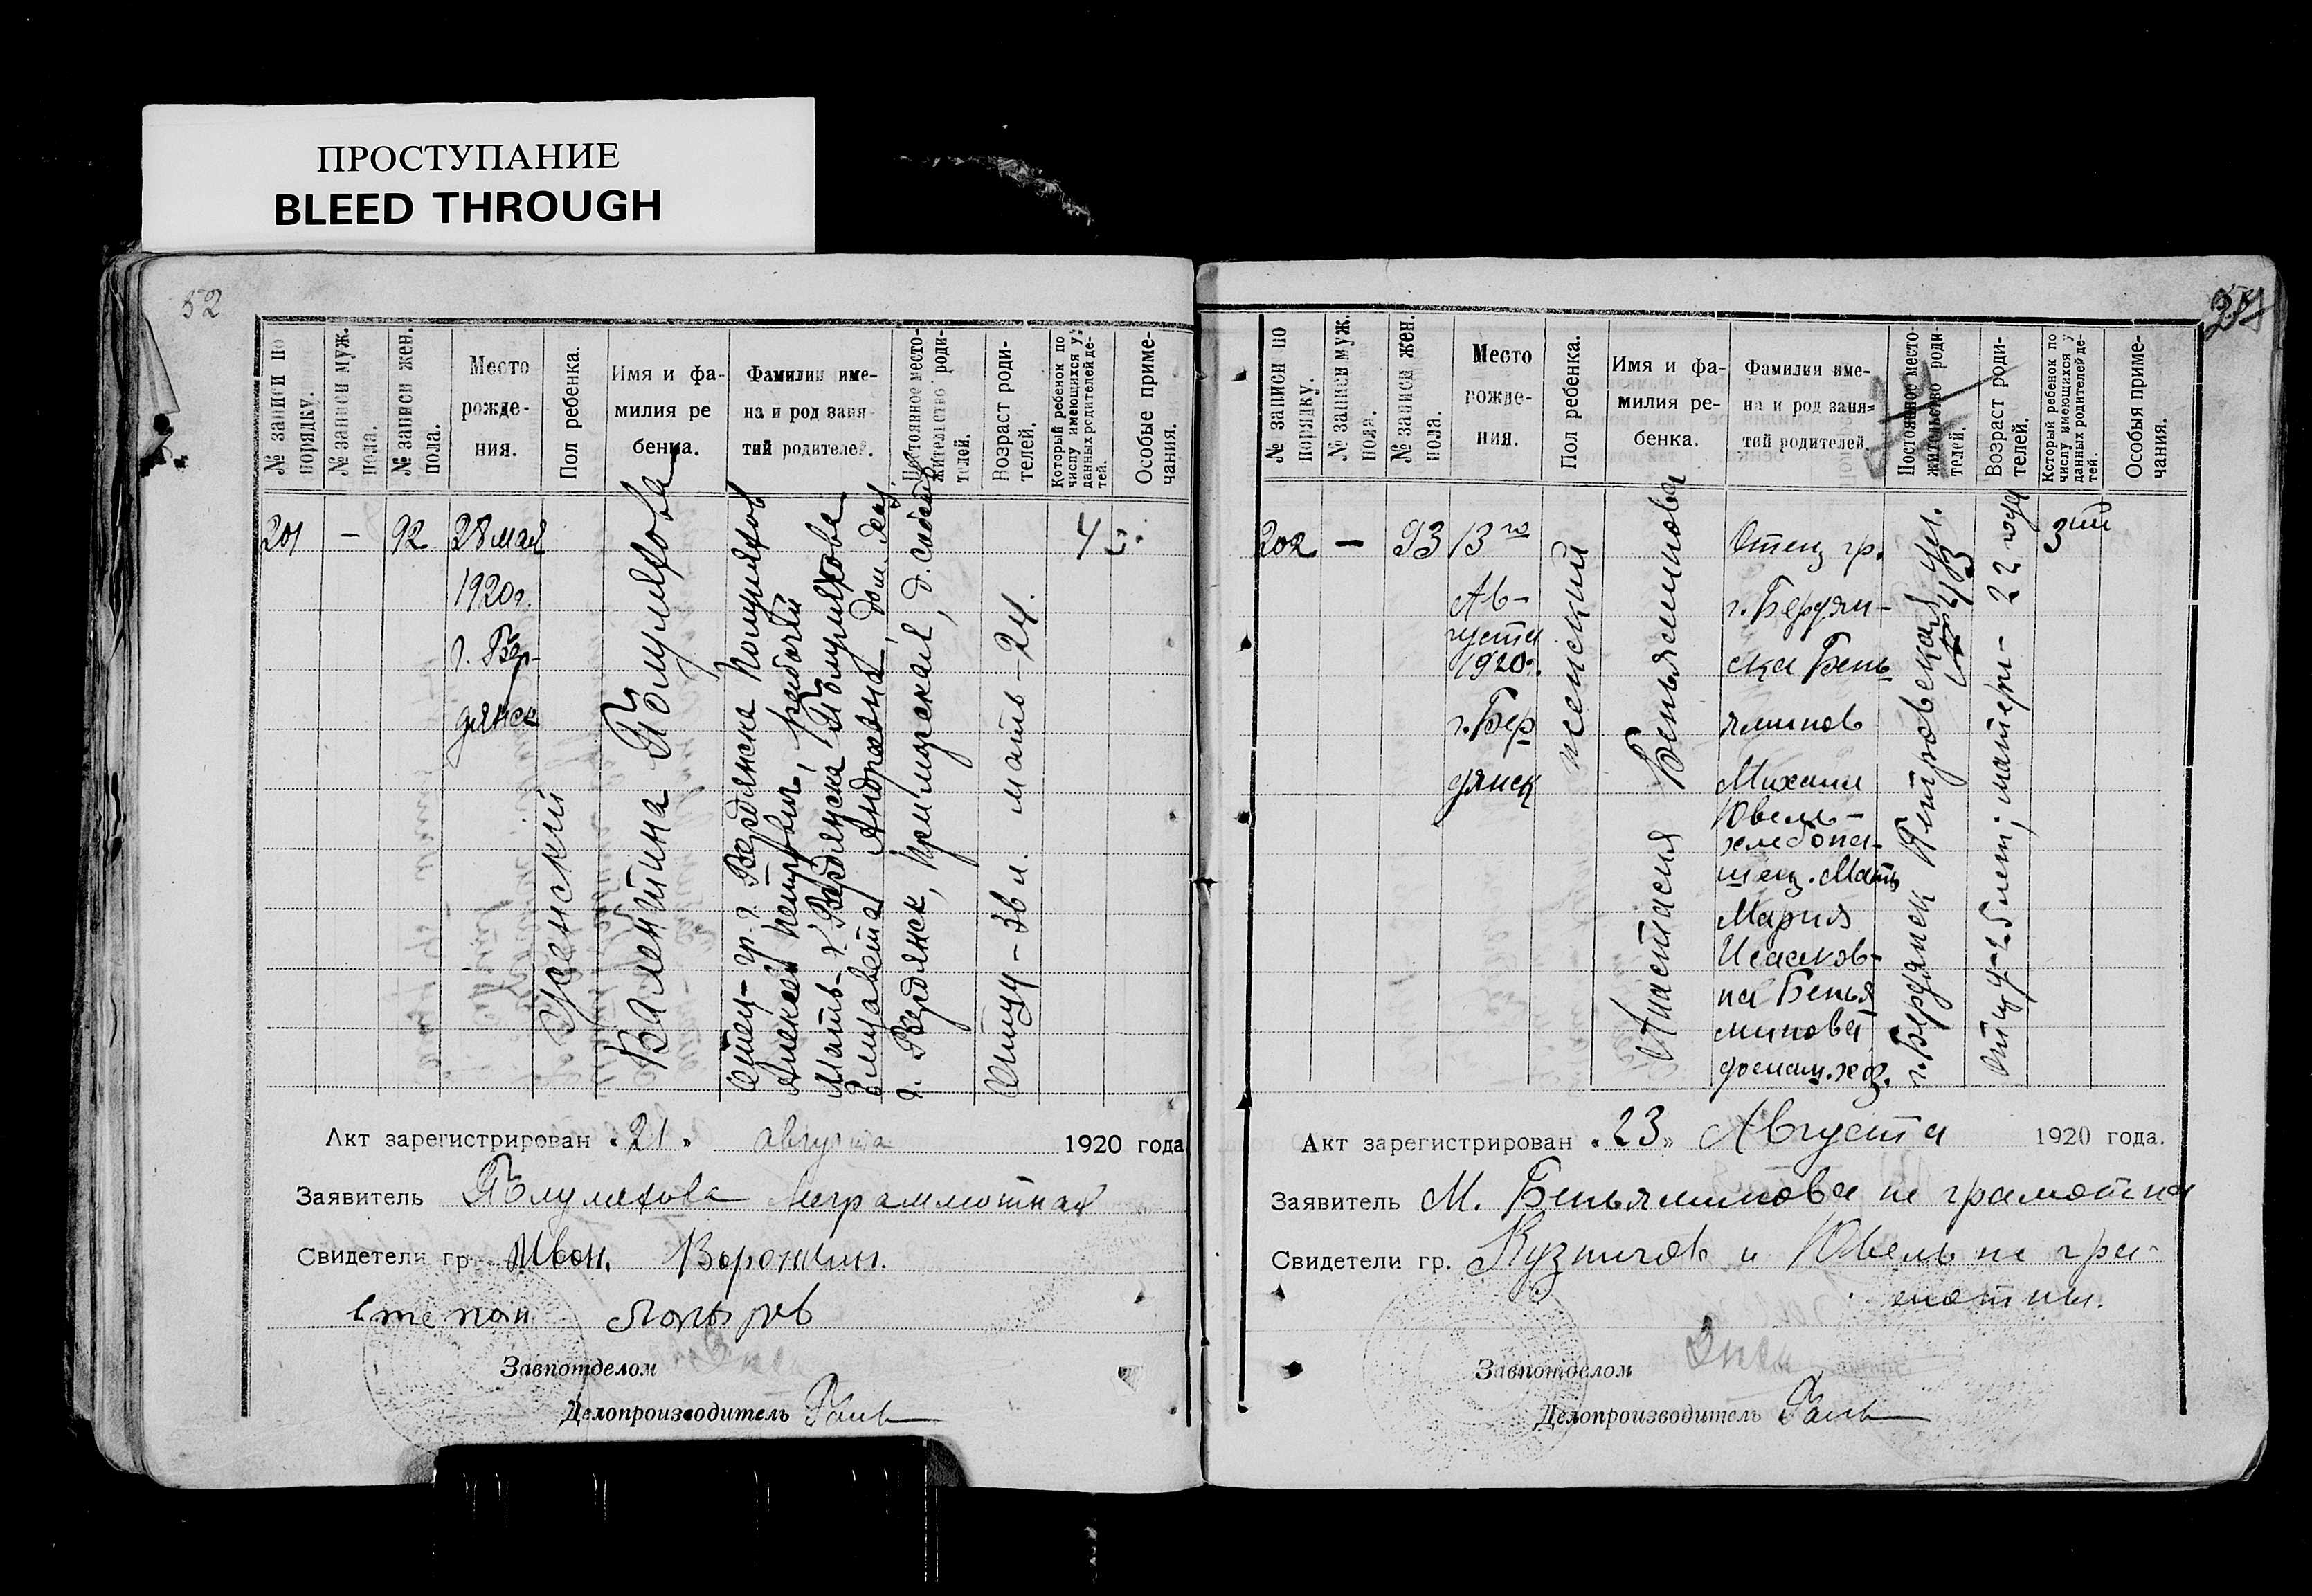 ПРОСТУПАНИЕ
BLEED THROUGH
52
№ записи по порядку.
№ записи муж. пола.
№ записи жен. пола.
Место рожде-ния.
Пол ребенка.
Имя и фа-милия ре бенка.
Фамилии име-на и род заня тий родителей.
Постоянное место-жительство роди-телей.
Возраст роди-телей.
Который ребенок по числу имеющихся у данных родителей де-тей.
Особые приме-чания.
201
—
92
28 мая
1920г.
г. Бер-
дянск
женский
Валентина
Отец – гр. г. Бердянска
Алексей Петрович, рабочий
Мать – г. Бердянска
Елизавета Андреевна,
г. Бердянск, Приморская, д.
Отцу – 38 л. мать – 24.
4
Акт зарегистрирован „21„ августа 1920 года
Заявитель неграммотная
Свидетели гр. Иван
Степан
Завпотделом
Делопроизводитель
№ записи по порядку.
№ записи муж. пола.
№ записи жен. пола.
Место рожде-ния.
Пол ребенка.
Имя и фа-милия ре-бенка.
Фамилии име-на и род заня-тий родителей
Постоянное место жительство роди телей.
Возраст роди-телей.
Который ребенок по числу имеющихся у данных родителей де-тей.
Особыя приме-чания.
202
—
93
13го
Ав-
густа
1920г.
г. Бер
дянск
женский
Анастасия Беньяминова
Отец гр.
г. Бердян-
ска Бень
яминов
Михаил
Ювель –
хлебопа-
шец. Мать
Мария
Исааков-
на Бенья
минова
домаш. хоз.
г. Бердянск
Отцу – 25 лет; матери – 22 года
3ий
Акт зарегистрирован „23„ Августа 1920 года.
Заявитель М. Беньяминова не грамотна
Свидетели гр. Кузничов и Ювель не гра-
мотны.
Завпотделом
Делопроизводитель